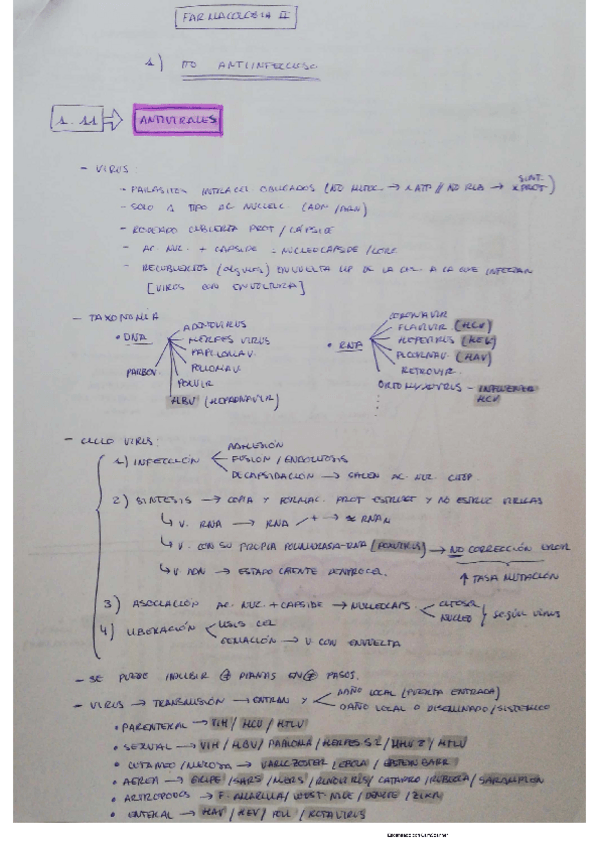 FARMACOLOGIA II
1) TTO ANTIINFECCIOSO
1.11 ⇒ ANTIVIRALES
- VIRUS
- PARASITOS INTRACEL OBLIGADOS (NO MITOC. → x ATP // NO RIB → SINT. x PROT)
- SOLO 1 TIPO AC NUCLEIC. (ADN / ARN)
- RODEADO CUBIERTA PROT / CÁPSIDE
- AC. NUC. + CAPSIDE = NUCLEOCAPSIDE / CORE
- RECUBIERTOS (algunos) ENVUELTA LIP DE LA CEL. A LA QUE INFECTAN
[VIRUS CON ENVOLTURA]
- TAXONOMÍA
• DNA
ADENOVIRUS
HERPES VIRUS
PAPILOMAV.
POLIOMAV.
POXVIR
PARVOV.
HBV (HEPADNAVIR)
• RNA
CORONAVIR
FLAVIVIR (HCV)
HEPEVIRUS (HEV)
PICORNAV. (HAV)
RETROVIR.
ORTOMIXOVIRUS - INFLUENZA
HCV
- CICLO VIRUS:
1) INFECCIÓN
ADHESIÓN
FUSION / ENDOCITOSIS
DECAPSIDACION → SALEN AC. NUC. CITOP.
2) SINTESIS → COPIA Y FORMAC. PROT ESTRUCT Y NO ESTRUC VIRICAS
↳ V. RNA → RNA / + → RNAm
↳ V. CON SU PROPIA POLIMERASA-RNA → NO CORRECCIÓN ERROR
↑ TASA MUTACIÓN
↳ V ADN → ESTADO LATENTE
3) ASOCIACIÓN AC. NUC. + CAPSIDE → NUCLEOCAPS. CITOSOL NUCLEO } SEGÚN VIRUS
4) LIBERACIÓN
LISIS CEL
GEMACIÓN → V CON ENVUELTA
- SE PUEDE INHIBIR EN PASOS.
- VIRUS → TRANSMISIÓN → ENTRAN Y
DAÑO LOCAL (PUERTA ENTRADA)
DAÑO LOCAL O DISEMINADO / SISTEMICO
• PARENTERAL → VIH / HCV / HTLV
• SEXUAL → VIH / HBV / PAPILOMA / HERPES S2 / HHV 2 / HTLV
• CUTANEO / MUCOSA → VARIC ZOSTER / EBOLA / EPSTEIN BARR
• AEREA → GRIPE / SARS / MERS / RINOVIRUS / CATARRO / RUBEOLA / SARAMPION
• ARTROPODOS → F. AMARILLA / WEST-NILE / DENGUE / ZIKA
• ENTERAL → HAV / HEV / POLI / ROTAVIRUS
Escaneado con CamScanner